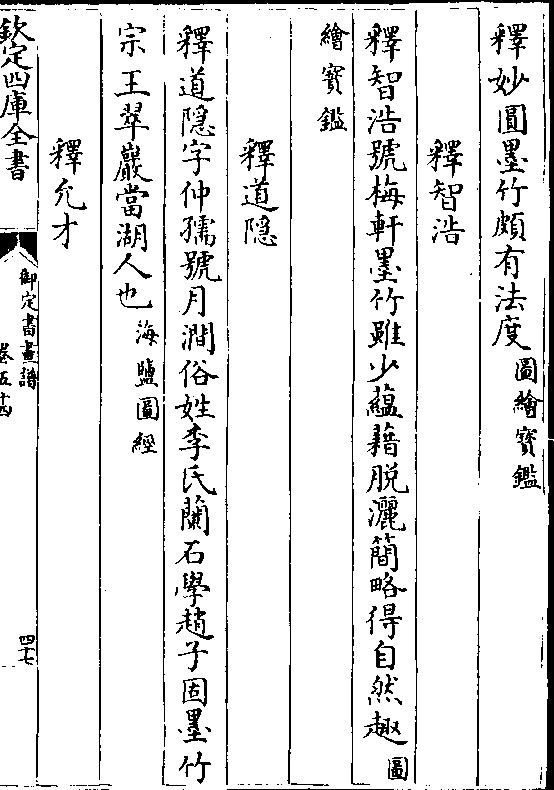 釋妙圓墨竹頗有法度圖繪寳鑑
釋智浩
釋智浩號梅軒墨竹雖少蘊藉脱灑簡略得自然趣圖
繪寳鑑
釋道隠
釋道隠字仲孺號月澗俗姓李氏蘭石學趙子固墨竹
宗王翠巖當湖人也海鹽圖經
釋允才
欽定四庫全書
御定書畫譜
卷五十四
四十七